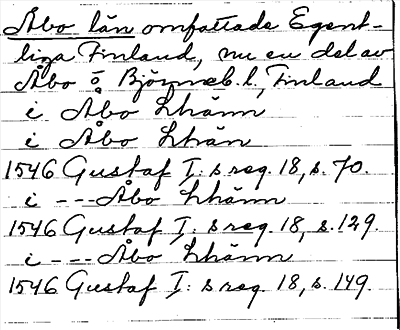 Åbo län omfattade Egent-
liga Finland, nu en del av
Åbo o Björneb. l, Finland
i Åbo Lhänn
i Åbo Lhän
1546 Gustaf I:s reg. 18, s. 70.
i --- Åbo Lhänn
1546 Gustaf I:s reg. 18, s. 129.
i --- Åbo Lhänn
1546 Gustaf I:s reg. 18, s. 149.